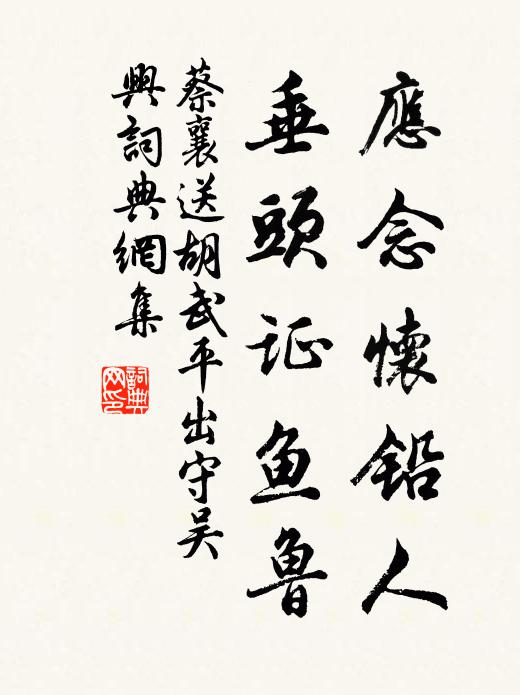 應念懷鉛人
垂頭证鱼魯
蔡襄送胡武平出守吴
興詞典網集
詞典
网印